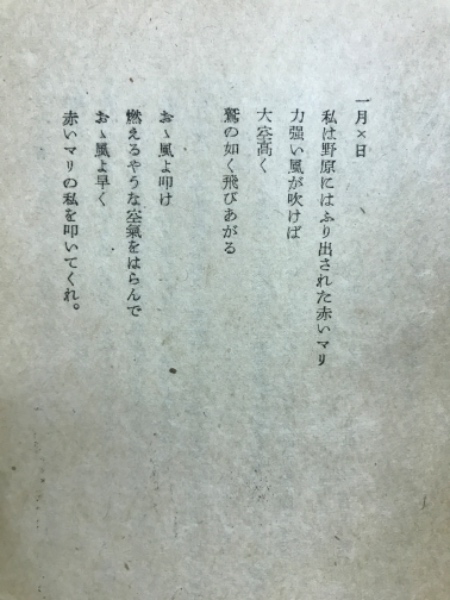 一月×日
私は野原にはふり出された赤いマリ
力強い風が吹けば
大空高く
鷲の如く飛びあがる
おゝ風よ叩け
燃えるやうな空氣をはらんで
おゝ風よ早く
赤いマリの私を叩いてくれ。